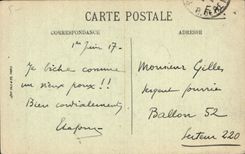 CARTE POSTALE
CORRESPONDANCE
ADRESSE
1er Juin 17.
Je biche comme
un vieux poux!!
Bien cordialement
Monsieur Gilles
Sergent fourrier
Ballon 52
Secteur 220